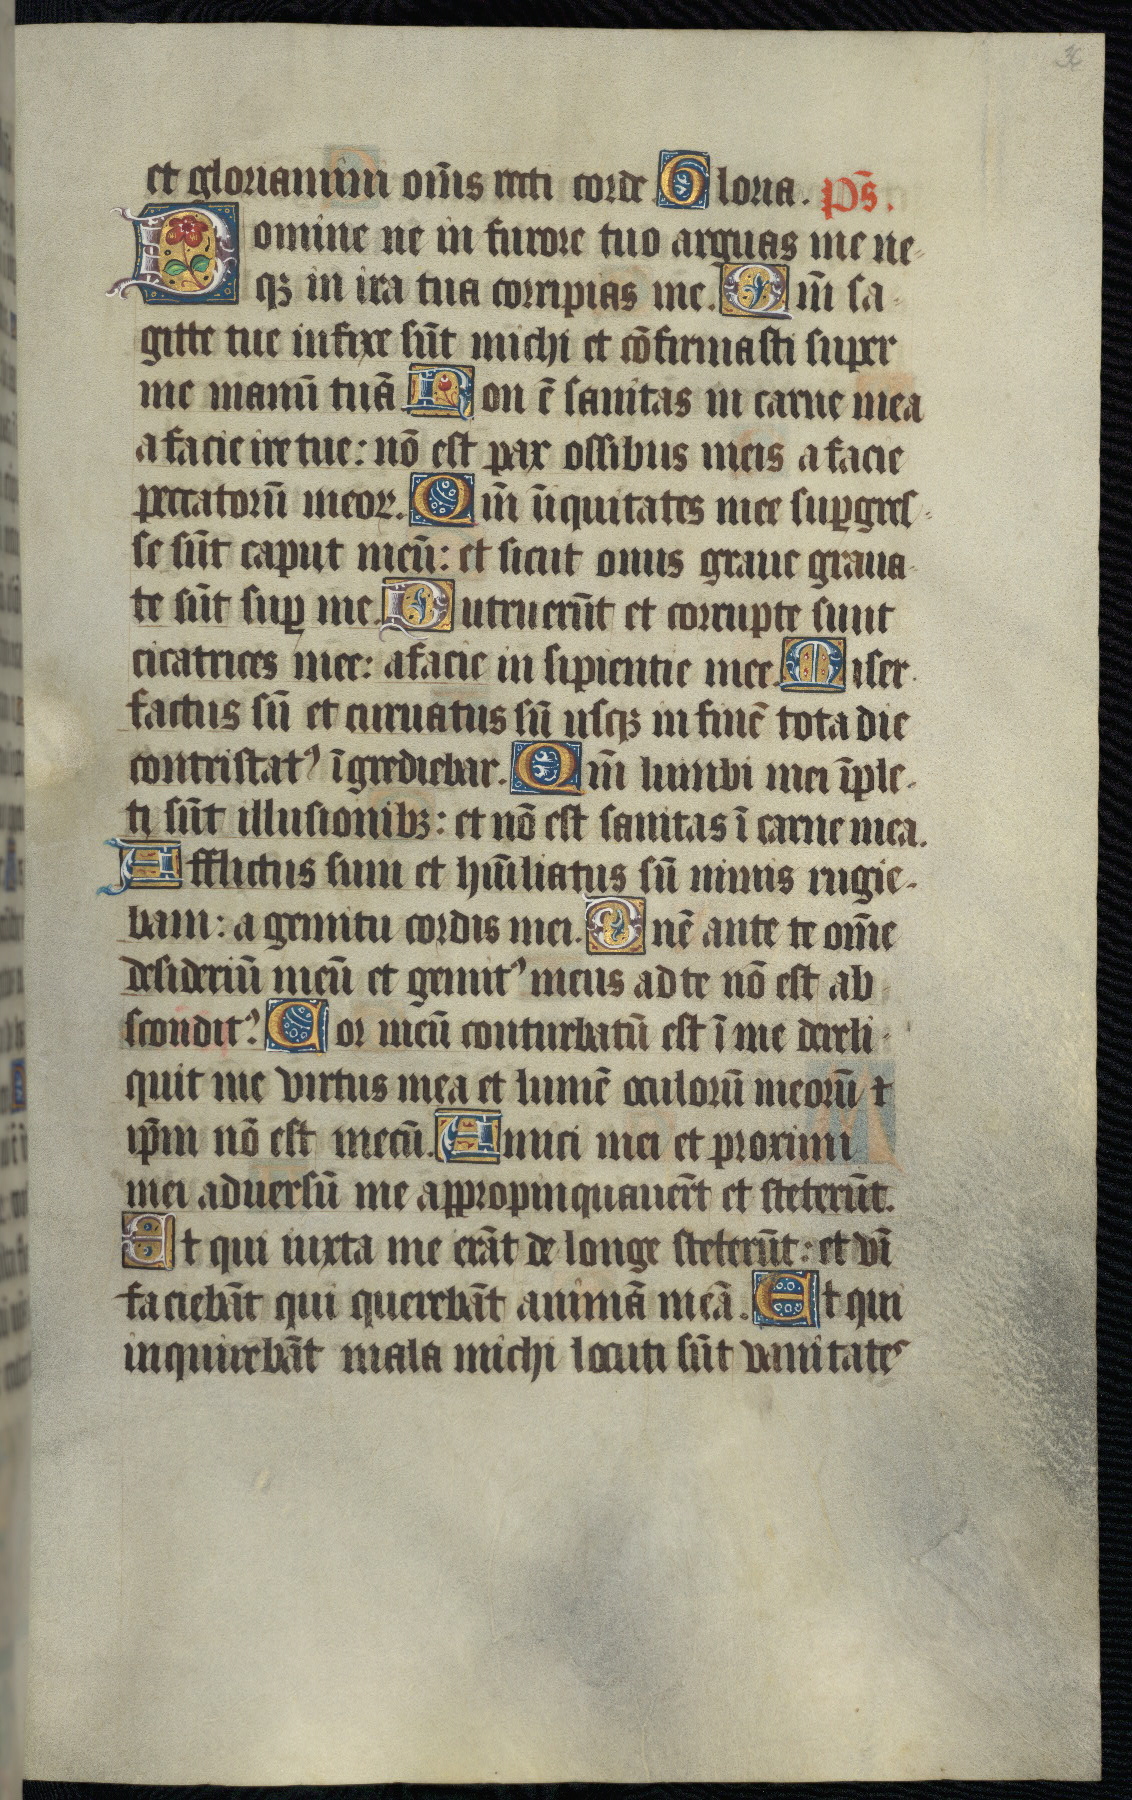 36
et gloriamini om̄s recti corde Gloria. p̄s.
Domine ne in furore tuo arguas me ne-
qꝫ in ira tua corripias me. Qm̄ sa-
gitte tue infixe sūt michi et cōfirmasti super
me manū tuā Non ē sanitas in carne mea
a facie ire tue: nō est pax ossibus meis a facie
peccatorū meoꝝ. Qm̄ iīquitates mee suꝑgres-
se sūt caput meū: et sicut onus graue graua-
te sūt suꝑ me. Putruerūt et corrupte sunt
cicatrices mee: afacie in sipientie mee. Miser
factus sū et curuatus sū usqꝫ in finē tota die
contristatꝰ īgrediebar. Qm̄ lumbi mei īple-
ti sūt illusionibꝫ: et nō est sanitas ī carne mea.
Afflictus sum et hūiliatus sū nimis rugie-
bam: a gemitu cordis mei. Dnē ante te om̄e
desideriū meū et gemitꝰ meus ad te nō est ab
sconditꝰ Cor meū conturbatū est ī me dereli-
quit me virtus mea et lumē oculorū meorū ⁊
ip̄m nō est mecū. Amici mei et proximi
mei aduersū me appropinquauer̄t et steterūt.
Et qui iuxta me erāt de longe steterūt: et vī
faciebāt qui querebāt animā meā. Et qui
inquirebāt mala michi locuti sūt vanitates